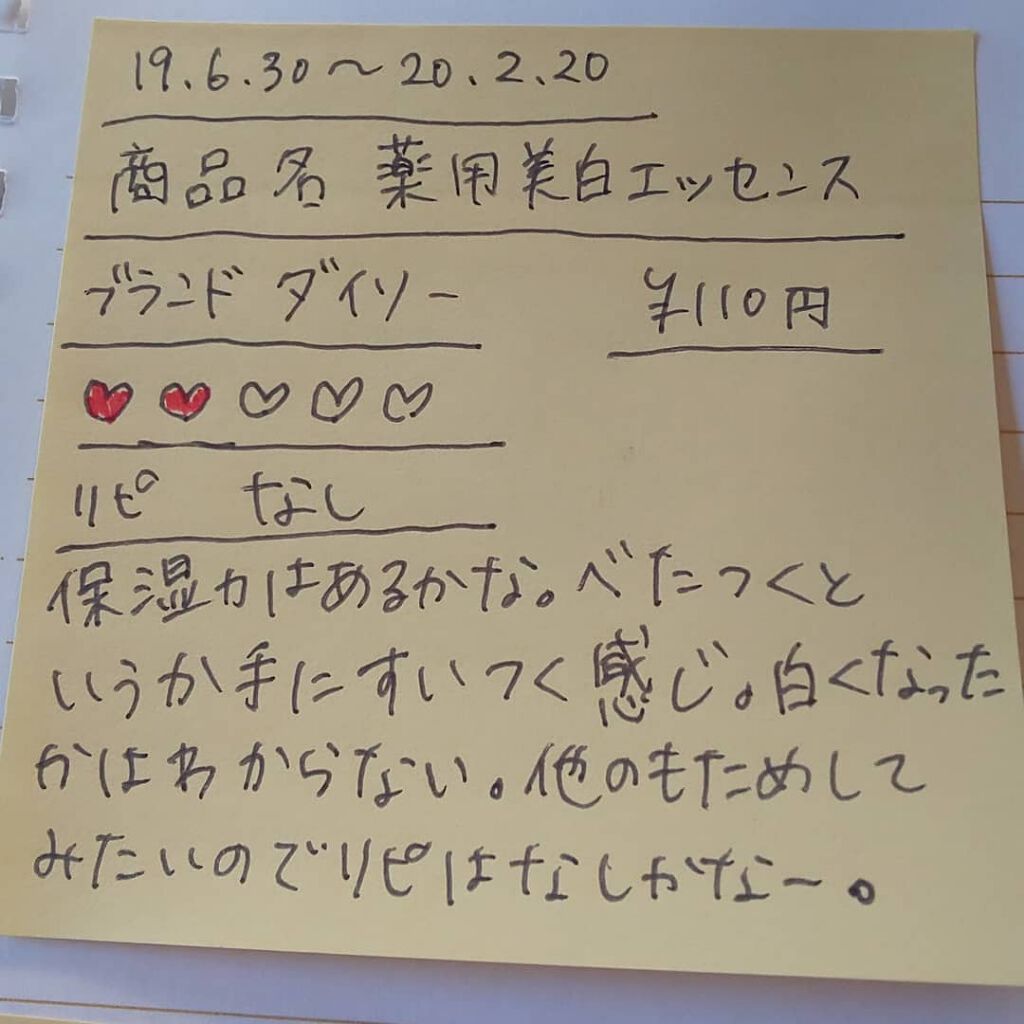 19.6.30〜20.2.20
商品名 薬用美白エッセンス
ブランド ダイソー ¥110円
リピ なし
保湿力はあるかな。べたつくと
いうか手にすいつく感じ。白くなった
かはわからない。他のもためして
みたいのでリピはなしかなー。